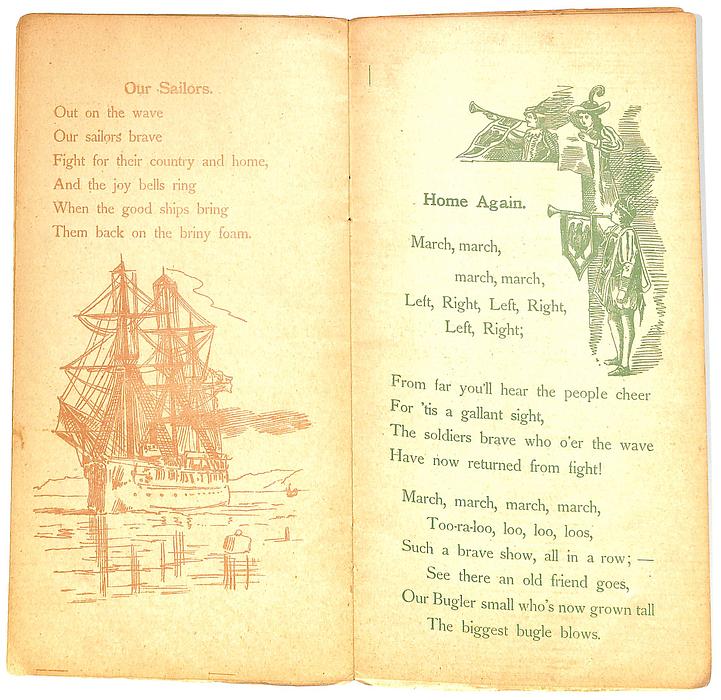 Our Sailors.
Out on the wave
Our sailors brave
Fight for their country and home,
And the joy bells ring
When the good ships bring
Them back on the briny foam.
Home Again.
March, march,
march, march,
Left, Right, Left, Right,
Left, Right;
From far you'll hear the people cheer
For 'tis a gallant sight,
The soldiers brave who o'er the wave
Have now returned from fight!
March, march, march, march,
Too-ra-loo, loo, loo, loos,
Such a brave show, all in a row; —
See there an old friend goes,
Our Bugler small who's now grown tall
The biggest bugle blows.